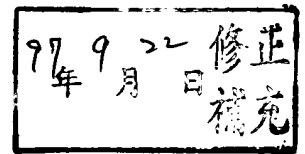 97年9月22日修正
補充